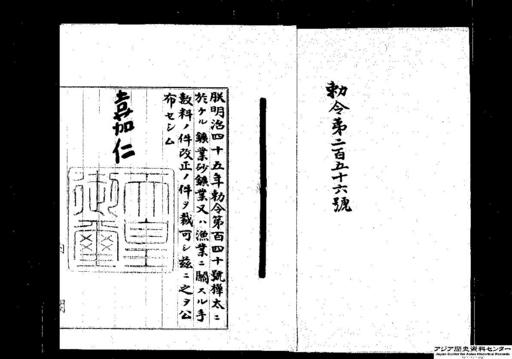 勅令第二百五十六號
朕明治四十五年勅令第百四十號樺太ニ
於ケル鑛業砂鑛業又ハ漁業ニ關スル手
數料ノ件改正ノ件ヲ裁可シ茲ニ之ヲ公
布セシム
嘉仁
天皇
御璽
内閣
アジア歴史資料センター
Japan Center for Asian Historical Records